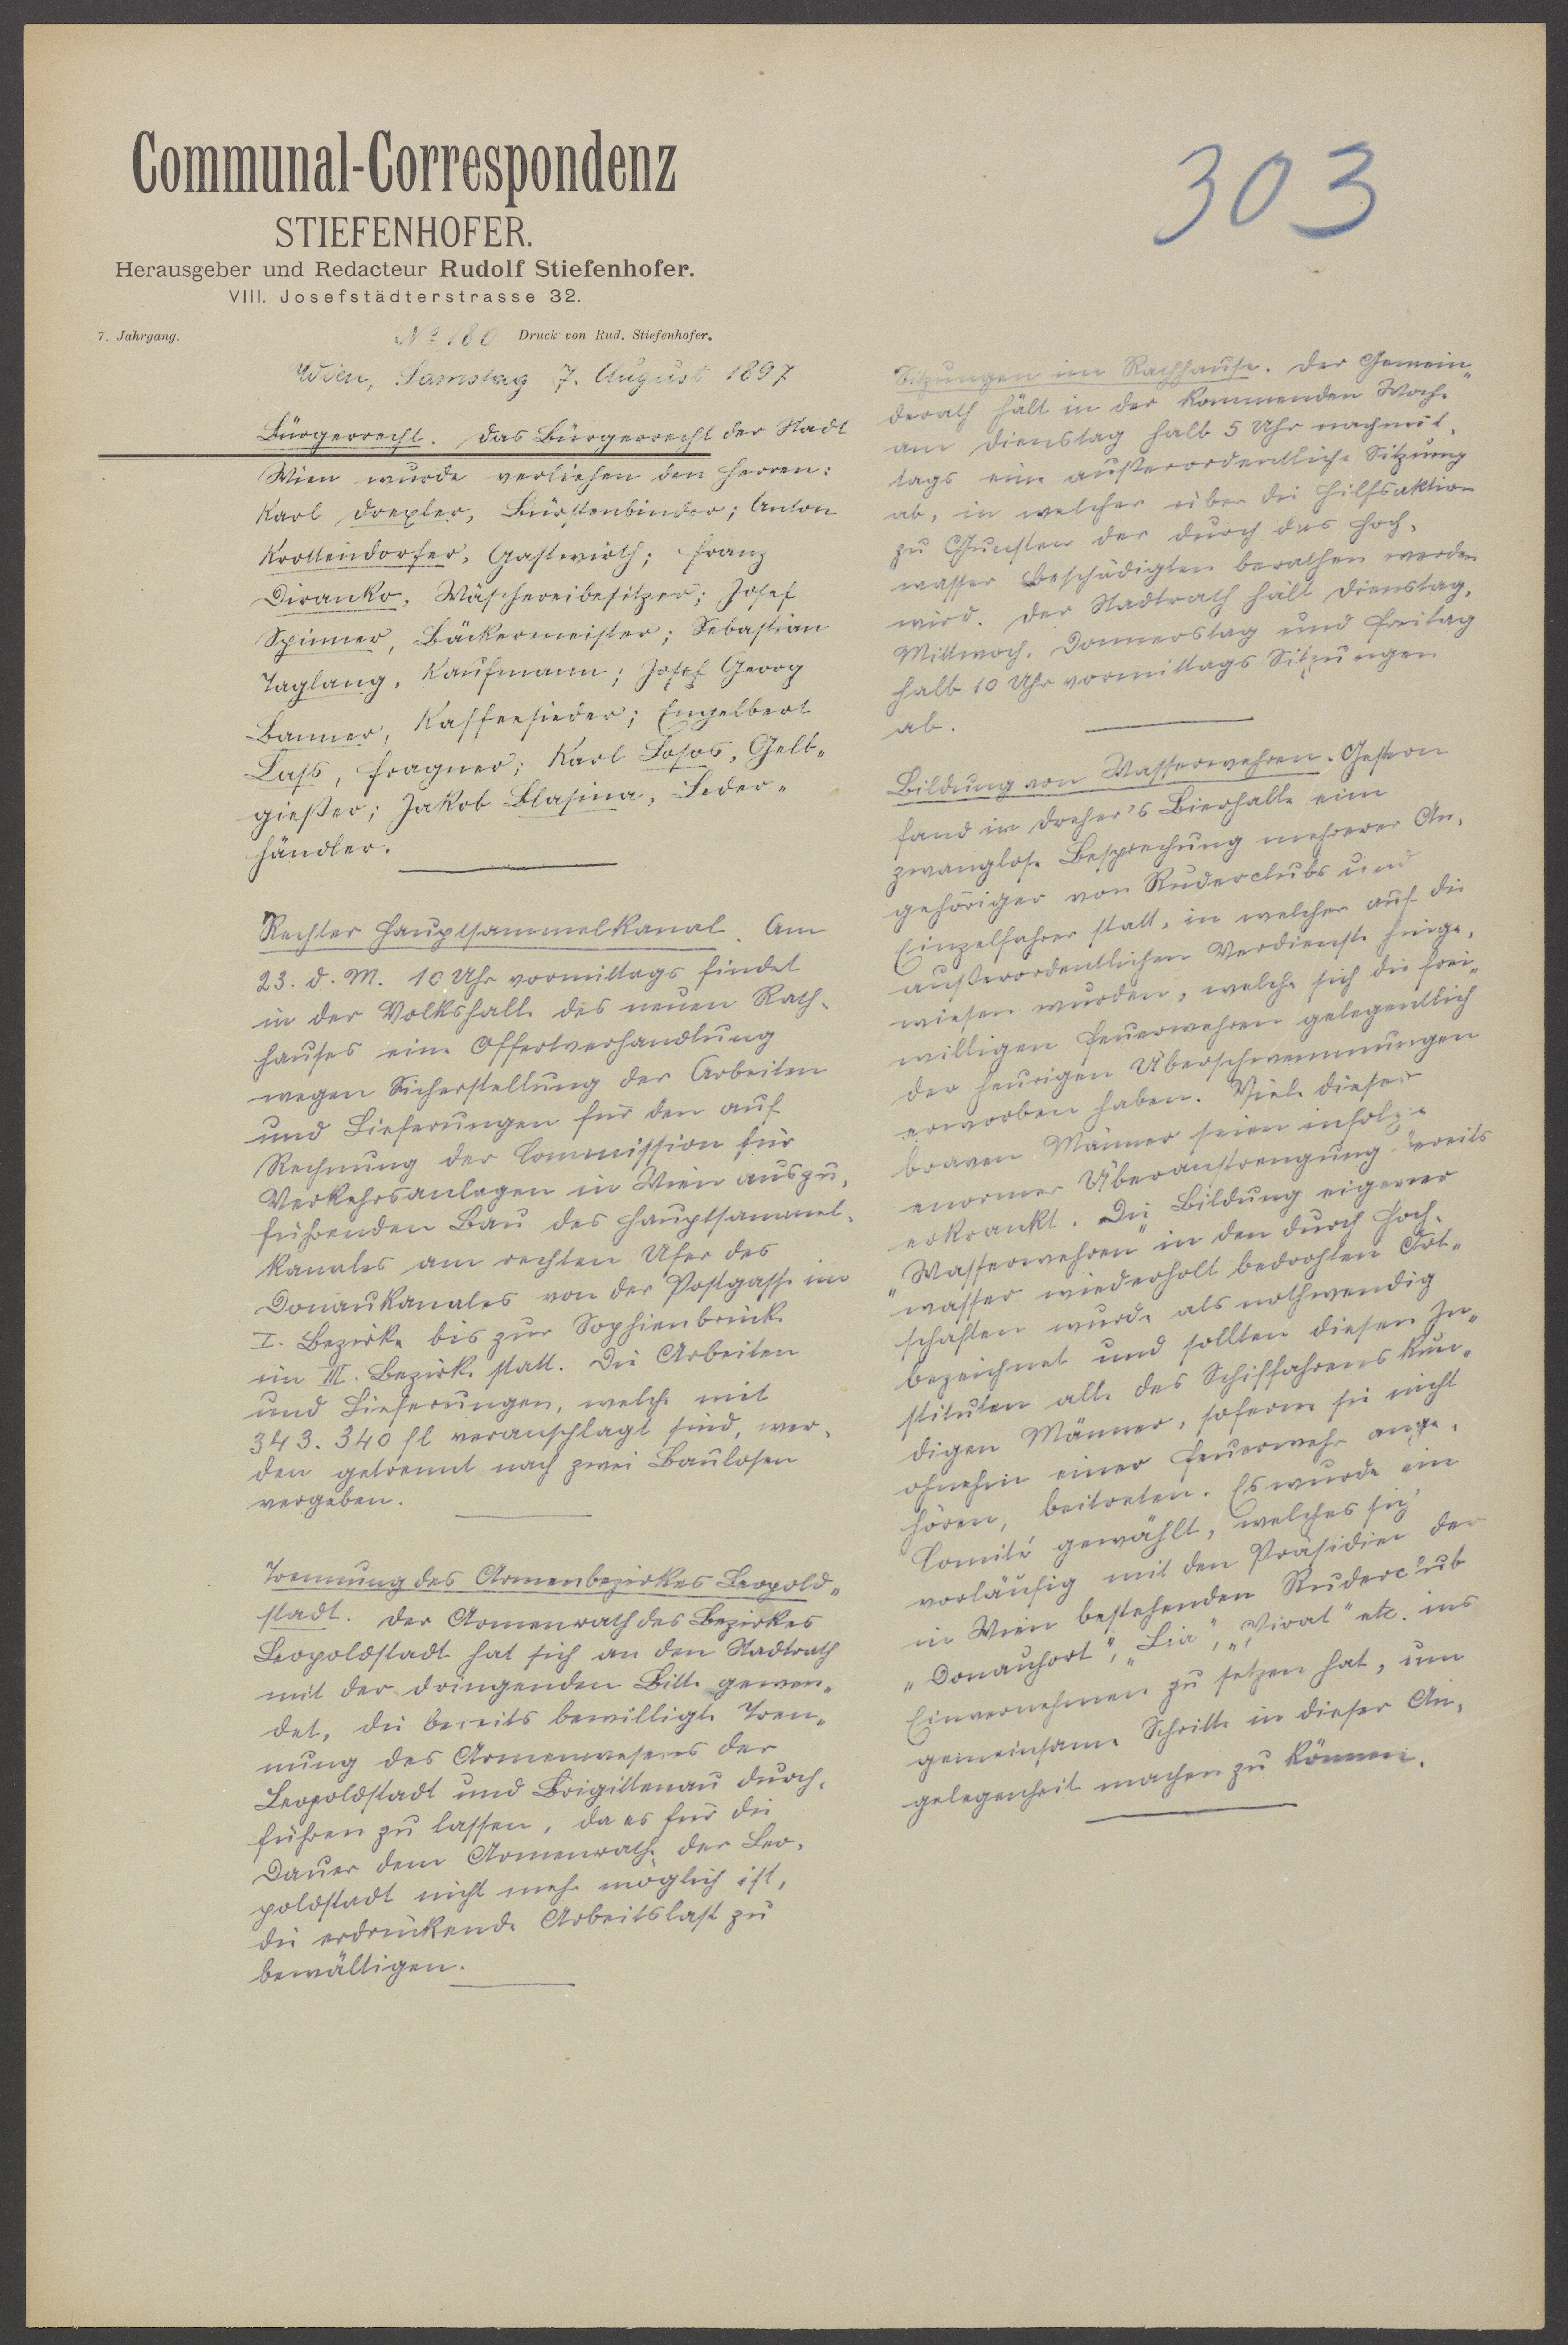 Communal-Correspondenz
STIEFENHOFER.
Herausgeber und Redacteur Rudolf Stiefenhofer.
VIII. Josefstädterstrasse 32.
7. Jahrgang. No 180 Druck von Rud. Stiefenhofer.
Wien, Samstag 7. August 1897
Bürgerrecht. Das Bürgerrecht der Stadt
Wien wurde verliehen den Herren:
Karl Drexler, Bürstenbinder; Anton
Krottendorfer, Gastwirth; Franz
Diranko, Wäschereibesitzer; Josef
Spinner, Bäckermeister; Sebastian
Taglang, Kaufmann; Josef Georg
Banner, Kaffeesieder; Engelbert
Lass, Fragner; Karl Sosos, Gelb„
gießer; Jakob Blasina, Leder„
händler.
Rechter Hauptsammelkanal. Am
23. d. M. 10 Uhr vormittags findet
in der Volkshalle des neuen Rath-
hauses eine Offertverhandlung
wegen Sicherstellung der Arbeiten
und Lieferungen für den auf
Rechnung der Commission für
Verkehrsanlagen in Wien auszu-
führenden Bau des Hauptsammel-
kanales am rechten Ufer des
Donaukanales von der Postgasse im
I. Bezirke bis zur Sophienbrücke
im III. Bezirke statt. Die Arbeiten
und Lieferungen, welche mit
343.340 fl veranschlagt sind, wer-
den getrennt nach zwei Baulosen
vergeben.
Trennung des Armenbezirkes Leopold„
stadt. Der Armenrath des Bezirkes
Leopoldstadt hat sich an den Stadtrath
mit der dringenden Bitte gewen„
det, die bereits bewilligte Tren„
nung des Armenwesens der
Leopoldstadt und Brigittenau durch-
führen zu lassen, da es für die
Dauer dem Armenrathe der Leo-
poldstadt nicht mehr möglich ist,
die erdrückende Arbeitslast zu
bewältigen.
303
Sitzungen im Rathhause. Der Gemein„
derath hält in der kommenden Woche
am Dienstag halb 5 Uhr nachmit-
tags eine außerordentliche Sitzung
ab, in welcher über die Hilfsaktion
zu Gunsten der durch das Hoch-
wasser Beschädigten berathen werden
wird. Der Stadtrath hält Dienstag,
Mittwoch, Donnerstag und Freitag
halb 10 Uhr vormittags Sitzungen
ab.
Bildung von Wasserwehren. Gestern
fand in Dreher's Bierhalle eine
zwanglose Besprechung mehrerer An-
gehöriger von Ruderclubs und
Einzelfahrer statt, in welcher auf die
außerordentlichen Verdienste hinge-
wiesen wurden, welche sich die frei„
willigen Feuerwehren gelegentlich
der heurigen Überschwemmungen
erworben haben. Viele dieser
braven Männer seien infolge
enormer Überanstrengung bereits
erkrankt. Die Bildung eigener
„Wasserwehren" in den durch Hoch-
wasser wiederholt bedrohten Ort„
schaften wurde als nothwendig
bezeichnet und sollten diesen In„
stituten alle des Schiffahrens kun„
digen Männer, soferne sie nicht
ohnehin einer Feuerwehr ange-
hören, beitreten. Es wurde ein
Comité gewählt, welches sich
vorläufig mit den Präsidien der
in Wien bestehenden Ruderclub
„Donauhort", „Lia", „Pirat" etc. ins
Einvernehmen zu setzen hat, um
gemeinsame Schritte in dieser An-
gelegenheit machen zu können.